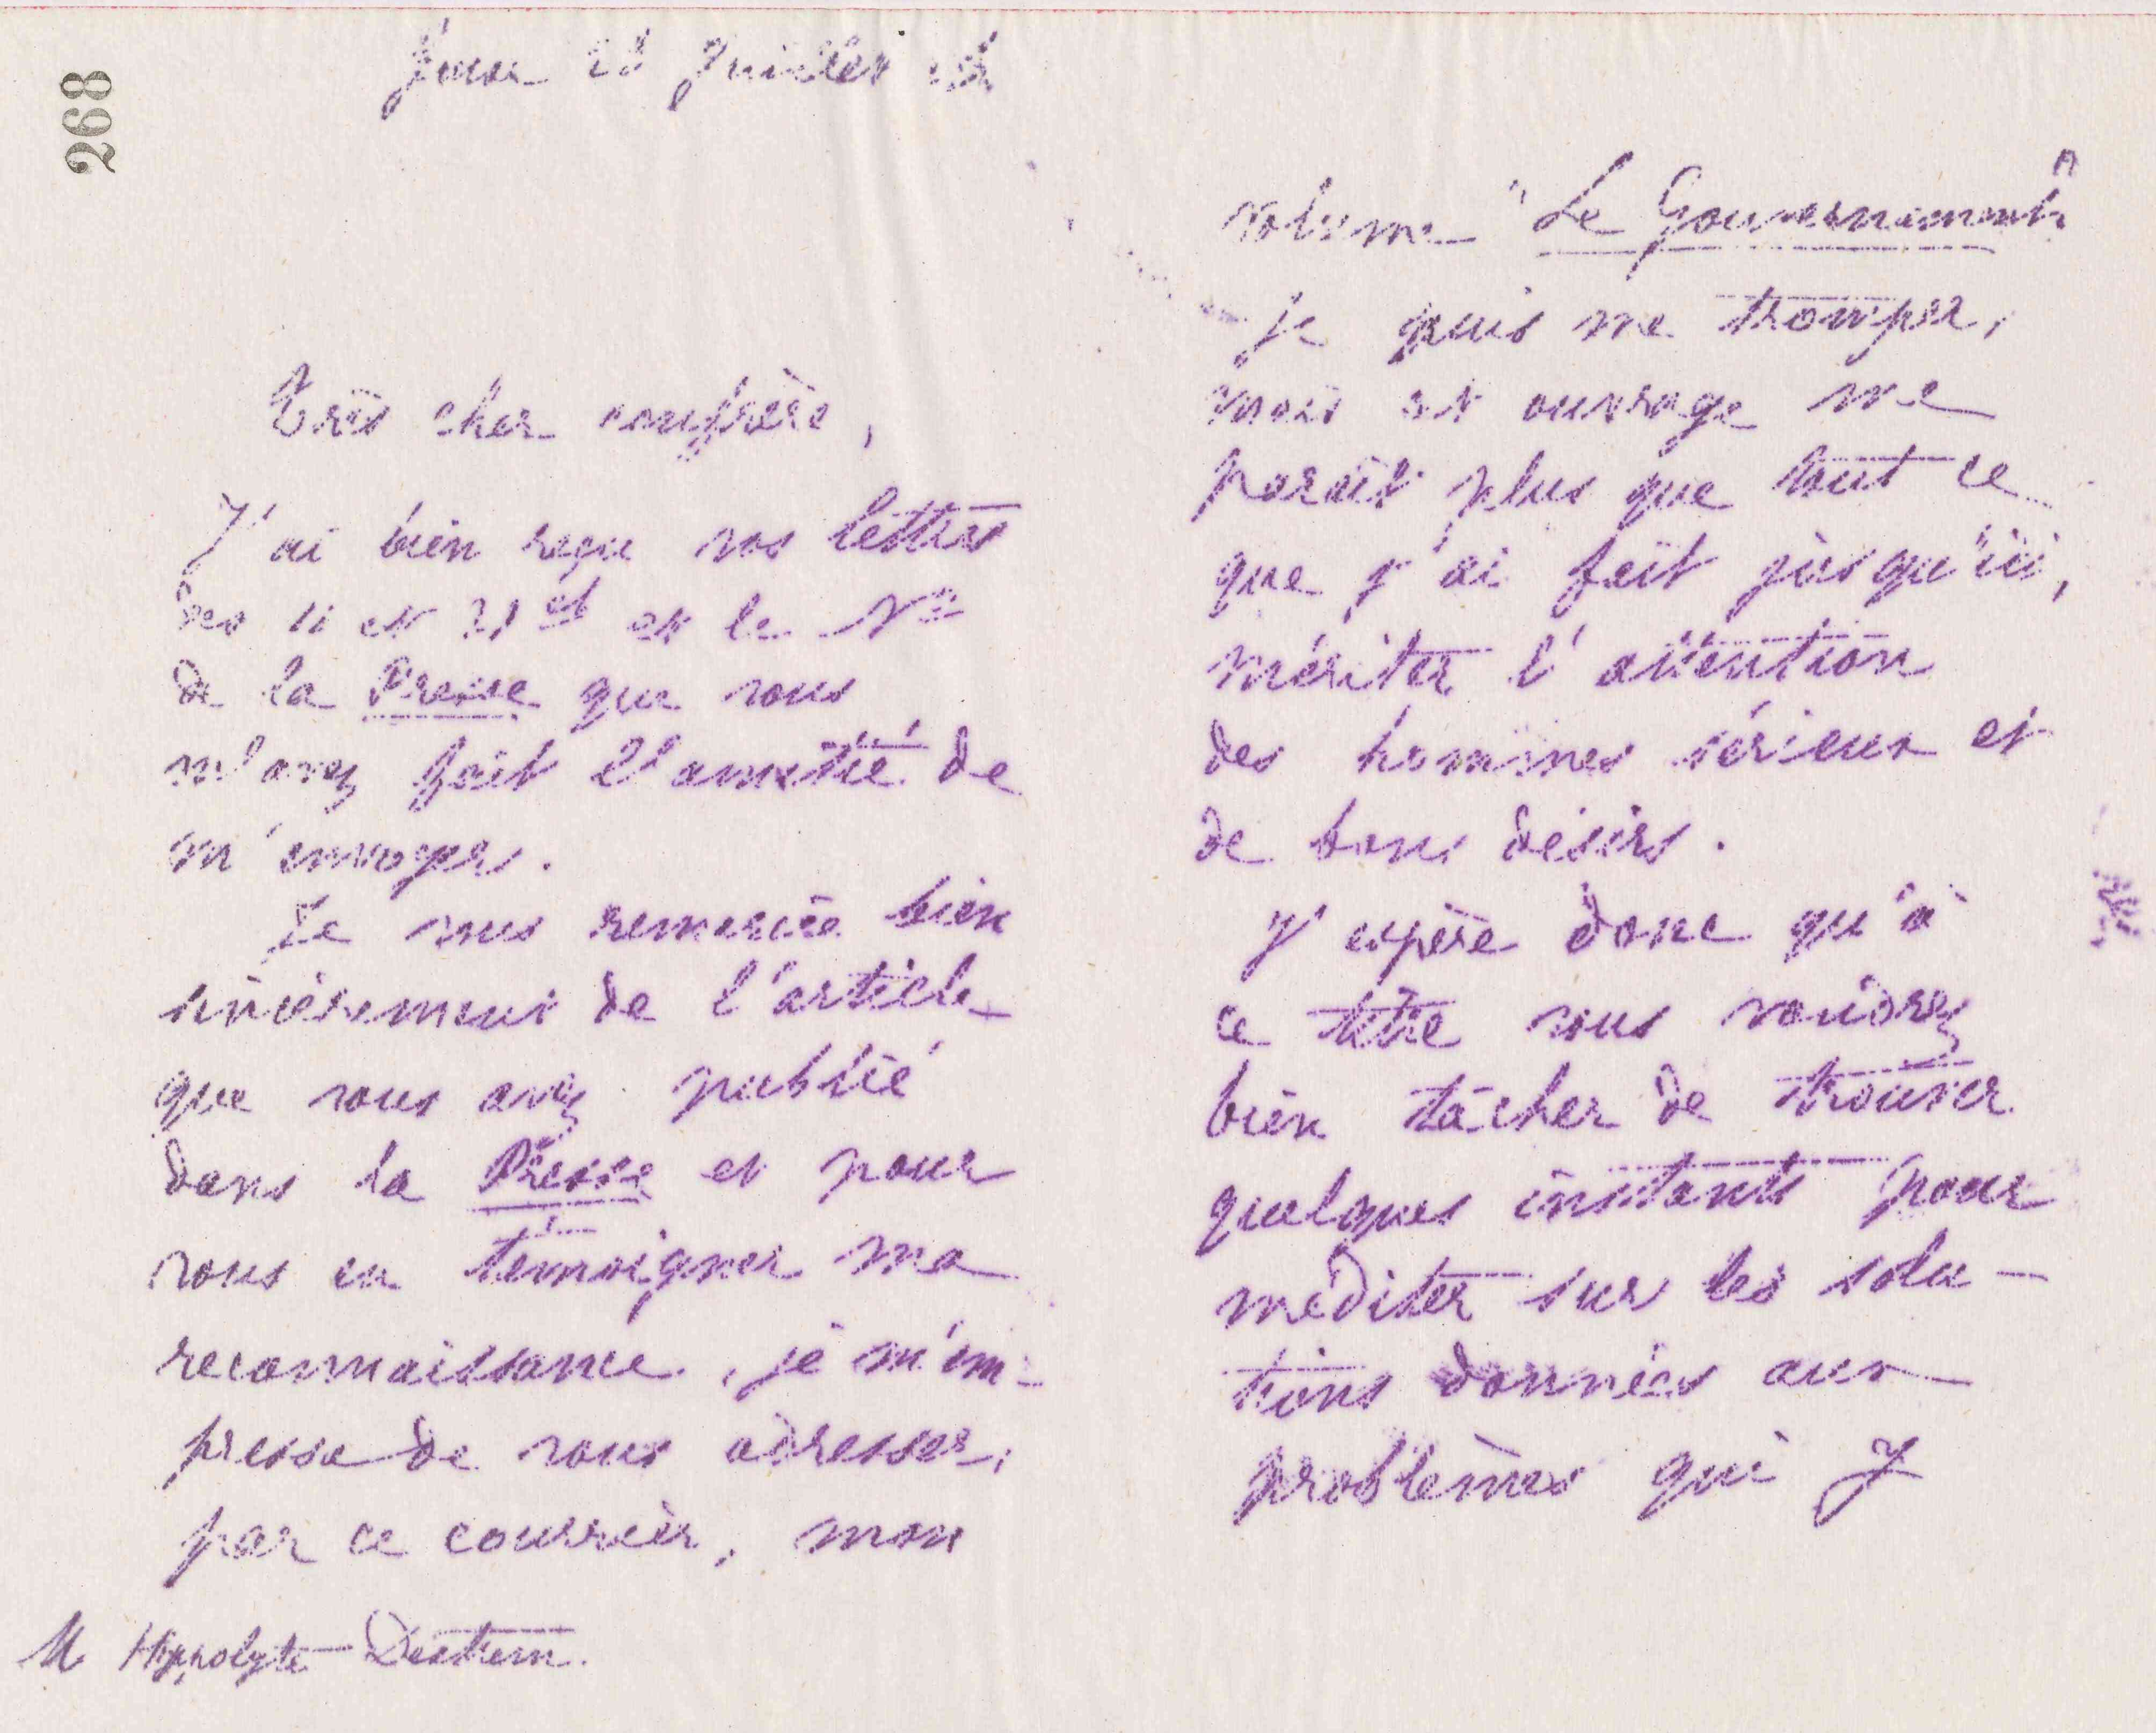 268
Juillet
Très cher confrère,
J'ai bien reçu vos lettres
des 11 et 21 et et le No
de la Presse que vous
m'avez fait l'amitié de
m'envoyer.
Je vous remercie bien
sincèrement de l'article
que vous avez publié
dans la Presse et pour
vous en témoigner ma
reconnaissance, je m'em-
presse de vous adresser,
par ce courrier, mon
M Hippolyte Destrem.
volume "Le Gouvernement"
Je puis me tromper,
mais cet ouvrage me
paraît plus que tout ce
que j'ai fait jusqu'ici,
mériter l'attention
des hommes sérieux et
de bons désirs.
J'espère donc qu'à
ce titre vous voudrez
bien tâcher de trouver
quelques instants pour
méditer sur les solu-
tions données aux
problèmes qui y